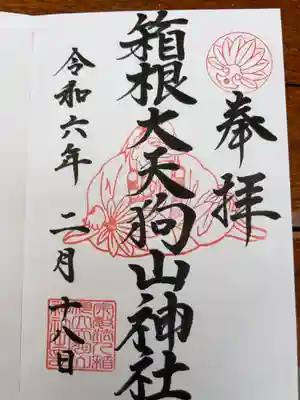 奉拝
箱根大天狗山神社
令和六年 二月 十八日